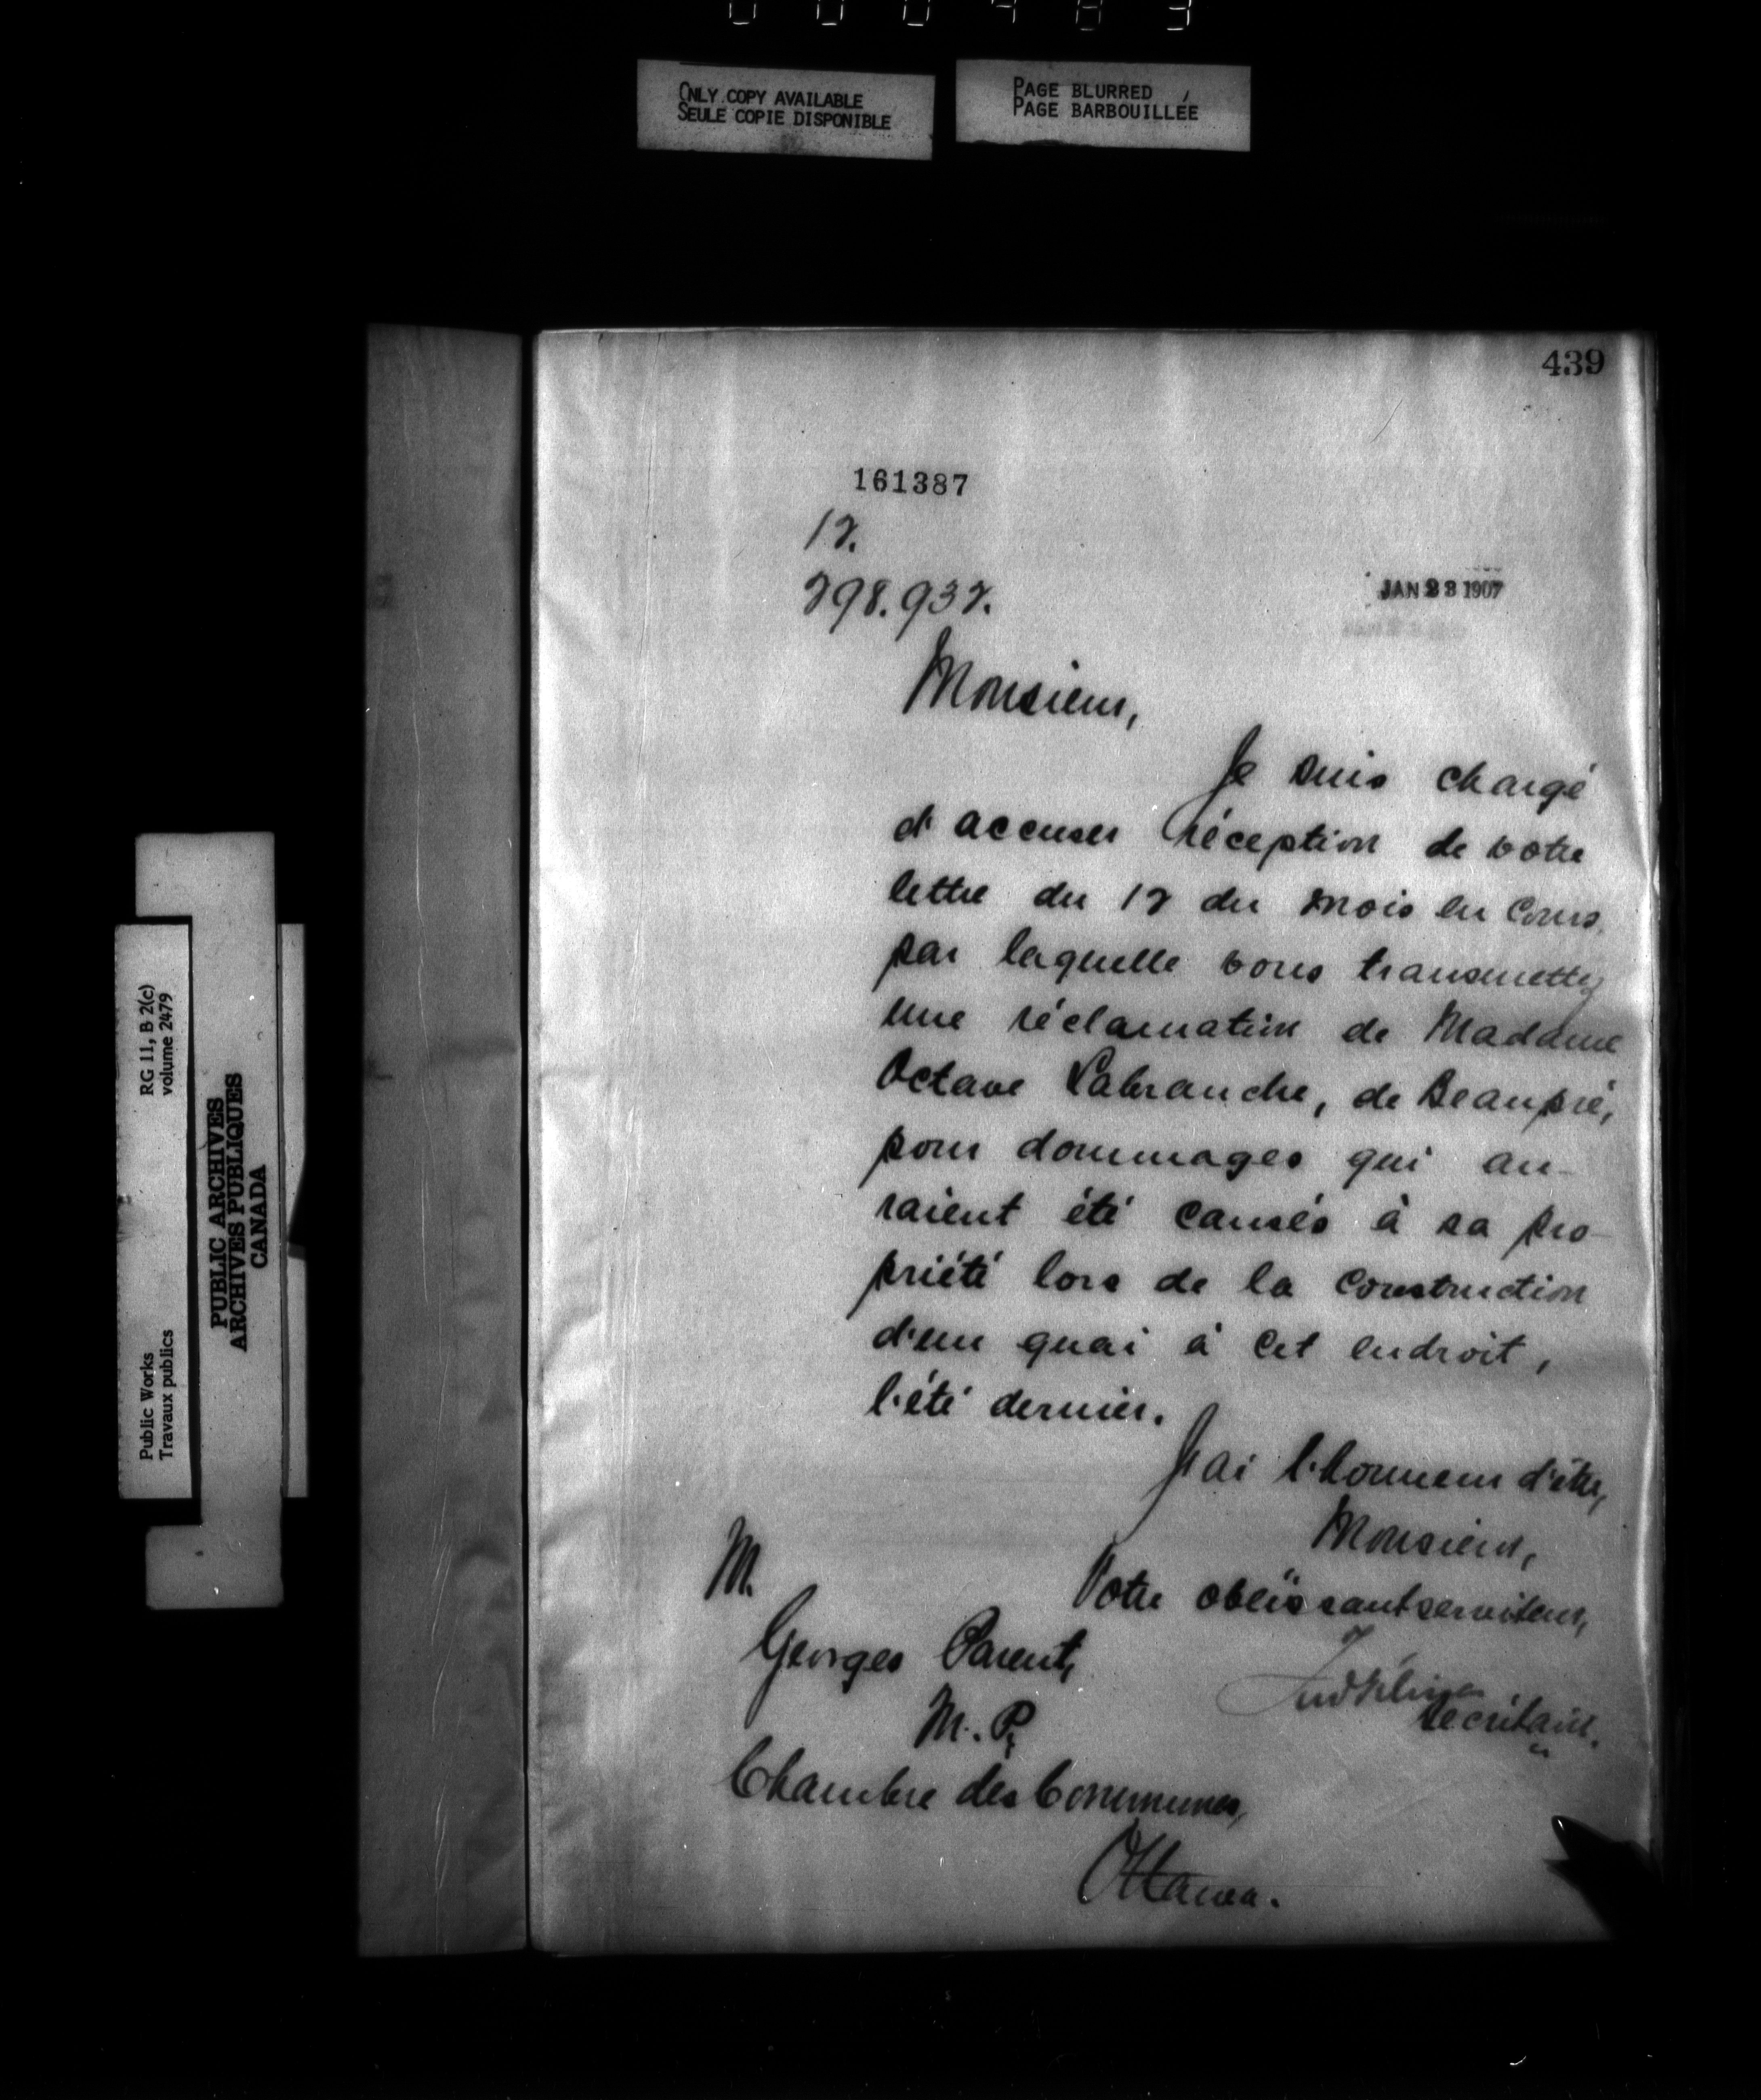 ONLY COPY AVAILABLE
SEULE COPIE DISPONIBLE
PAGE BLURRED
PAGE BARBOUILLÉE
439
161387
17.
298.937.
JAN 23 1907
Monsieur,
Je suis chargé
d'accuser réception de votre
lettre du 17 du mois en cours,
par laquelle vous transmettez
une réclamation de Madame
Octave Labranche, de Beaupré,
pour dommages qui au-
raient été causés à sa pro-
priété lors de la construction
d'un quai à cet endroit,
l'été dernier.
J'ai l'honneur d'être,
Monsieur,
Votre obéissant serviteur,
Secrétaire.
M.
Georges Parent,
M. P.,
Chambre des Communes,
Ottawa.
RG 11, B 2(c)
volume 2479
Public Works
Travaux publics
PUBLIC ARCHIVES
ARCHIVES PUBLIQUES
CANADA